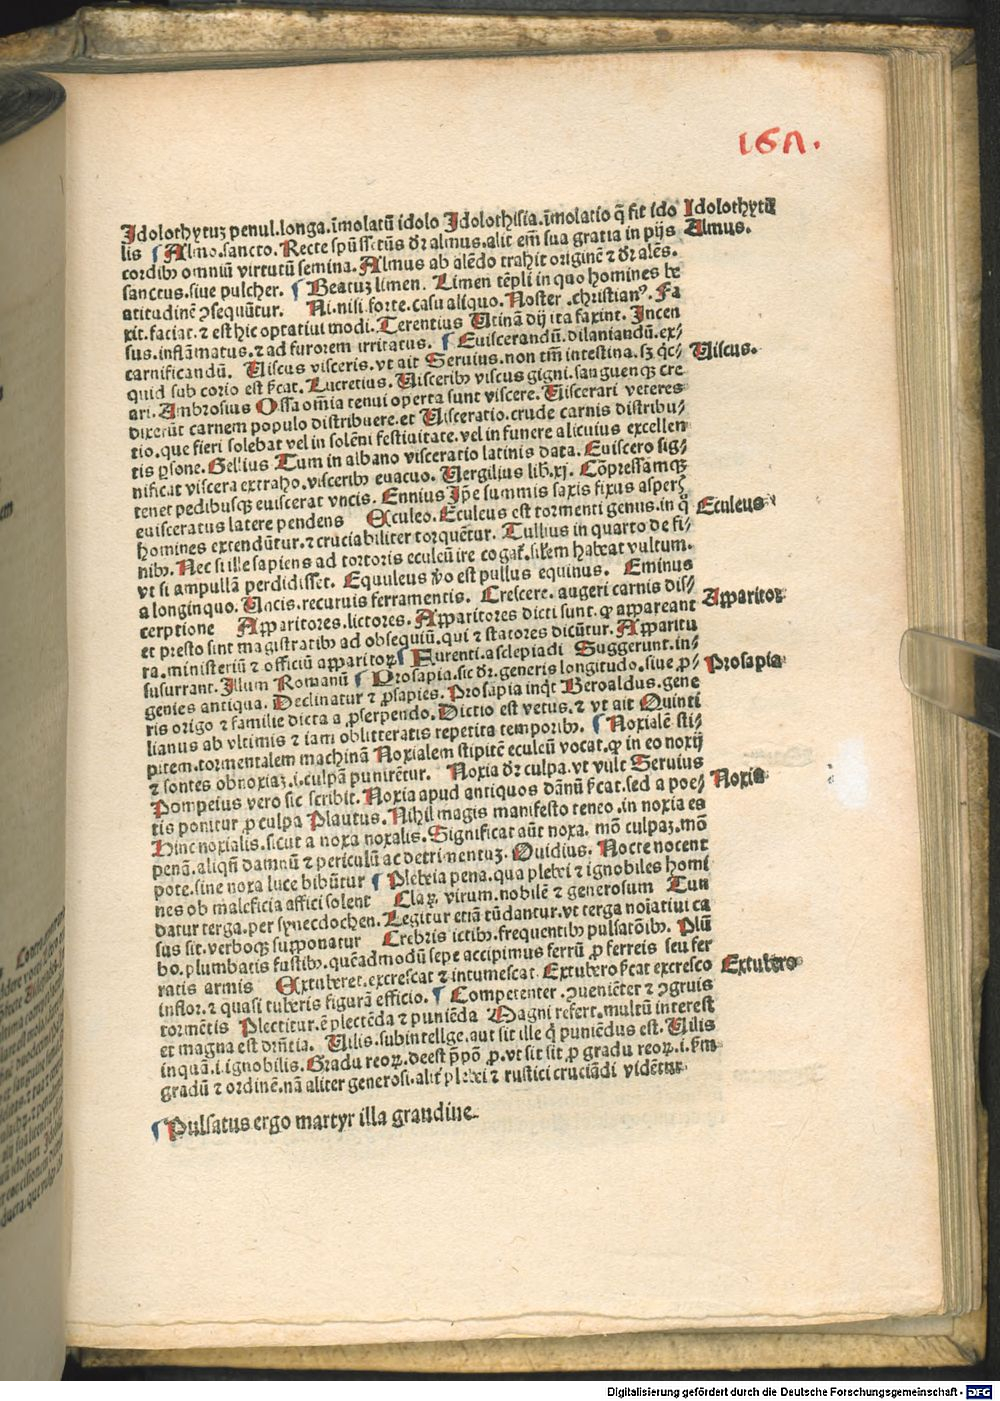 167.
Idolothytuʒ penul.longa.īmolatū idolo Idolothisia.īmolatio q̄ fit ido Idolothytū
lis ¶ Almo.sancto. Recte spūssctūs dr̄ almus.alit em̄ sua gratia in pijs Almus.
cordibꝰ omniū virtutū semina. Almus ab alēdo trahit originē ⁊ dr̄ alēs.
sanctus.siue pulcher. ¶ Beatuʒ limen. Limen tēpli in quo homines be
atitudinē ɔsequūtur. Ni.nisi.forte.casu aliquo. Noster.christianꝰ. Fa
xit.faciat.⁊ est hic optatiui modi. Terentius Utinā dij ita faxint. Incen
sus.inflāmatus.⁊ ad furorem irritatus. ¶ Euiscerandū.dilaniandū.ex-
carnificandū. Uiscus visceris.vt ait Seruius.non tm̄ intestina.sʒ qͨc- Uiscus.
quid sub corio est sc̄at. Lucretius. Uisceribꝰ viscus gigni.sanguenqꝫ cre
ari. Ambrosius Ossa om̄ia tenui operta sunt viscere. Uiscerari veteres
dixerūt carnem populo distribuere.et Uisceratio.crude carnis distribu-
tio.que fieri solebat vel in solēni festiuitate.vel in funere alicuius excellen
tis ꝑsone. Gellius Tum in albano visceratio latinis data. Euiscero sig-
nificat viscera extraho.visceribꝰ euacuo. Uergilius lib.xj. Cōpressāmqꝫ
tenet pedibusqꝫ euiscerat vncis. Ennius Ip̄e summis saxis fixus asperꝭ
euisceratus latere pendens Eculeo. Eculeus est tormenti genus.in q̊ Eculeus
homines extendūtur.⁊ cruciabiliter torquētur. Tullius in quarto de fi-
nibꝰ. Nec si ille sapiens ad tortoris eculeū ire cogat᷑.silem habeat vultum.
vt si ampullā perdidisset. Equuleus ṽo est pullus equinus. Eminus
a longinquo. Uncis.recuruis ferramentis. Crescere.augeri carnis dis-
cerptione Apparitores.lictores. Apparitores dicti sunt.ꝙ appareant Apparitor
et presto sint magistratibꝰ ad obsequiū.qui ⁊ statores dicūtur. Apparitu
ra.ministeriū ⁊ officiū apparitoꝝ ¶ Furenti.asclepiadi Suggerunt.in-
susurrant. Illum Romanū ¶ Prosapia.sic dr̄.generis longitudo.siue ꝓ- Prosapia
genies antiqua. Declinatur ⁊ ꝓsapies. Prosapia inqͥt Beroaldus.gene
ris origo ⁊ familie dicta a ꝓserpendo. Dictio est vetus.⁊ vt ait Quinti
lianus ab vltimis ⁊ iam oblitteratis repetita temporibꝰ. ¶ Noxialē sti-
pitem.tormentalem machinā Noxialem stipitē eculeū vocat.ꝙ in eo noxij
⁊ sontes obnoxiaʒ.i.culpā punirētur. Noxia dr̄ culpa.vt vult Seruius
Pompeius vero sic scribit. Noxia apud antiquos dānū sc̄at.sed a poe- Noxia
tis ponitur ꝓ culpa Plautus. Nihil magis manifesto teneo.in noxia es
Hinc noxialis.sicut a noxa noxalis. Significat aūt noxa. mō culpaʒ.mō
penā.aliqn̄ damnū ⁊ periculū ac detrimentuʒ. Ouidius. Nocte nocent
pote.sine noxa luce bibūtur ¶ Plebeia pena.qua plebei ⁊ ignobiles homi
nes ob maleficia affici solent Claꝝ.virum.nobilē ⁊ generosum Tun
datur terga.per synecdochen. Legitur etiā tūdantur.vt terga noīatiui ca
sus sit.verboqꝫ supponatur Crebris ictibꝰ.frequentibꝰ pulsatōibꝰ. Plū
bo.plumbatis fustibꝰ.quēadmodū sepe accipimus ferrū ꝓ ferreis seu fer
ratis armis Extuberet.excrescat ⁊ intumescat. Extubero sc̄at excresco Extubero
inflor.⁊ quasi tuberis figurā efficio. ¶ Competenter.ɔueniēter ⁊ ɔgruis
tormētis Plectitur.ē plectēda ⁊ puniēda Magni refert.multū interest
et magna est dr̄ntia. Uilis.subintellge.aut sit ille q̇ puniēdus est. Uilis
inquā.i.ignobilis. Gradu reoꝝ.deest p̄pō ꝓ.vt sit sit ꝓ gradu reoꝝ.i.ẜm
gradū ⁊ ordinē.nā aliter generosi.alit᷑ plebei ⁊ rustici cruciādi vidētur
¶ Pulsatus ergo martyr illa grandine
Digitalisierung gefördert durch die Deutsche Forschungsgemeinschaft - DFG